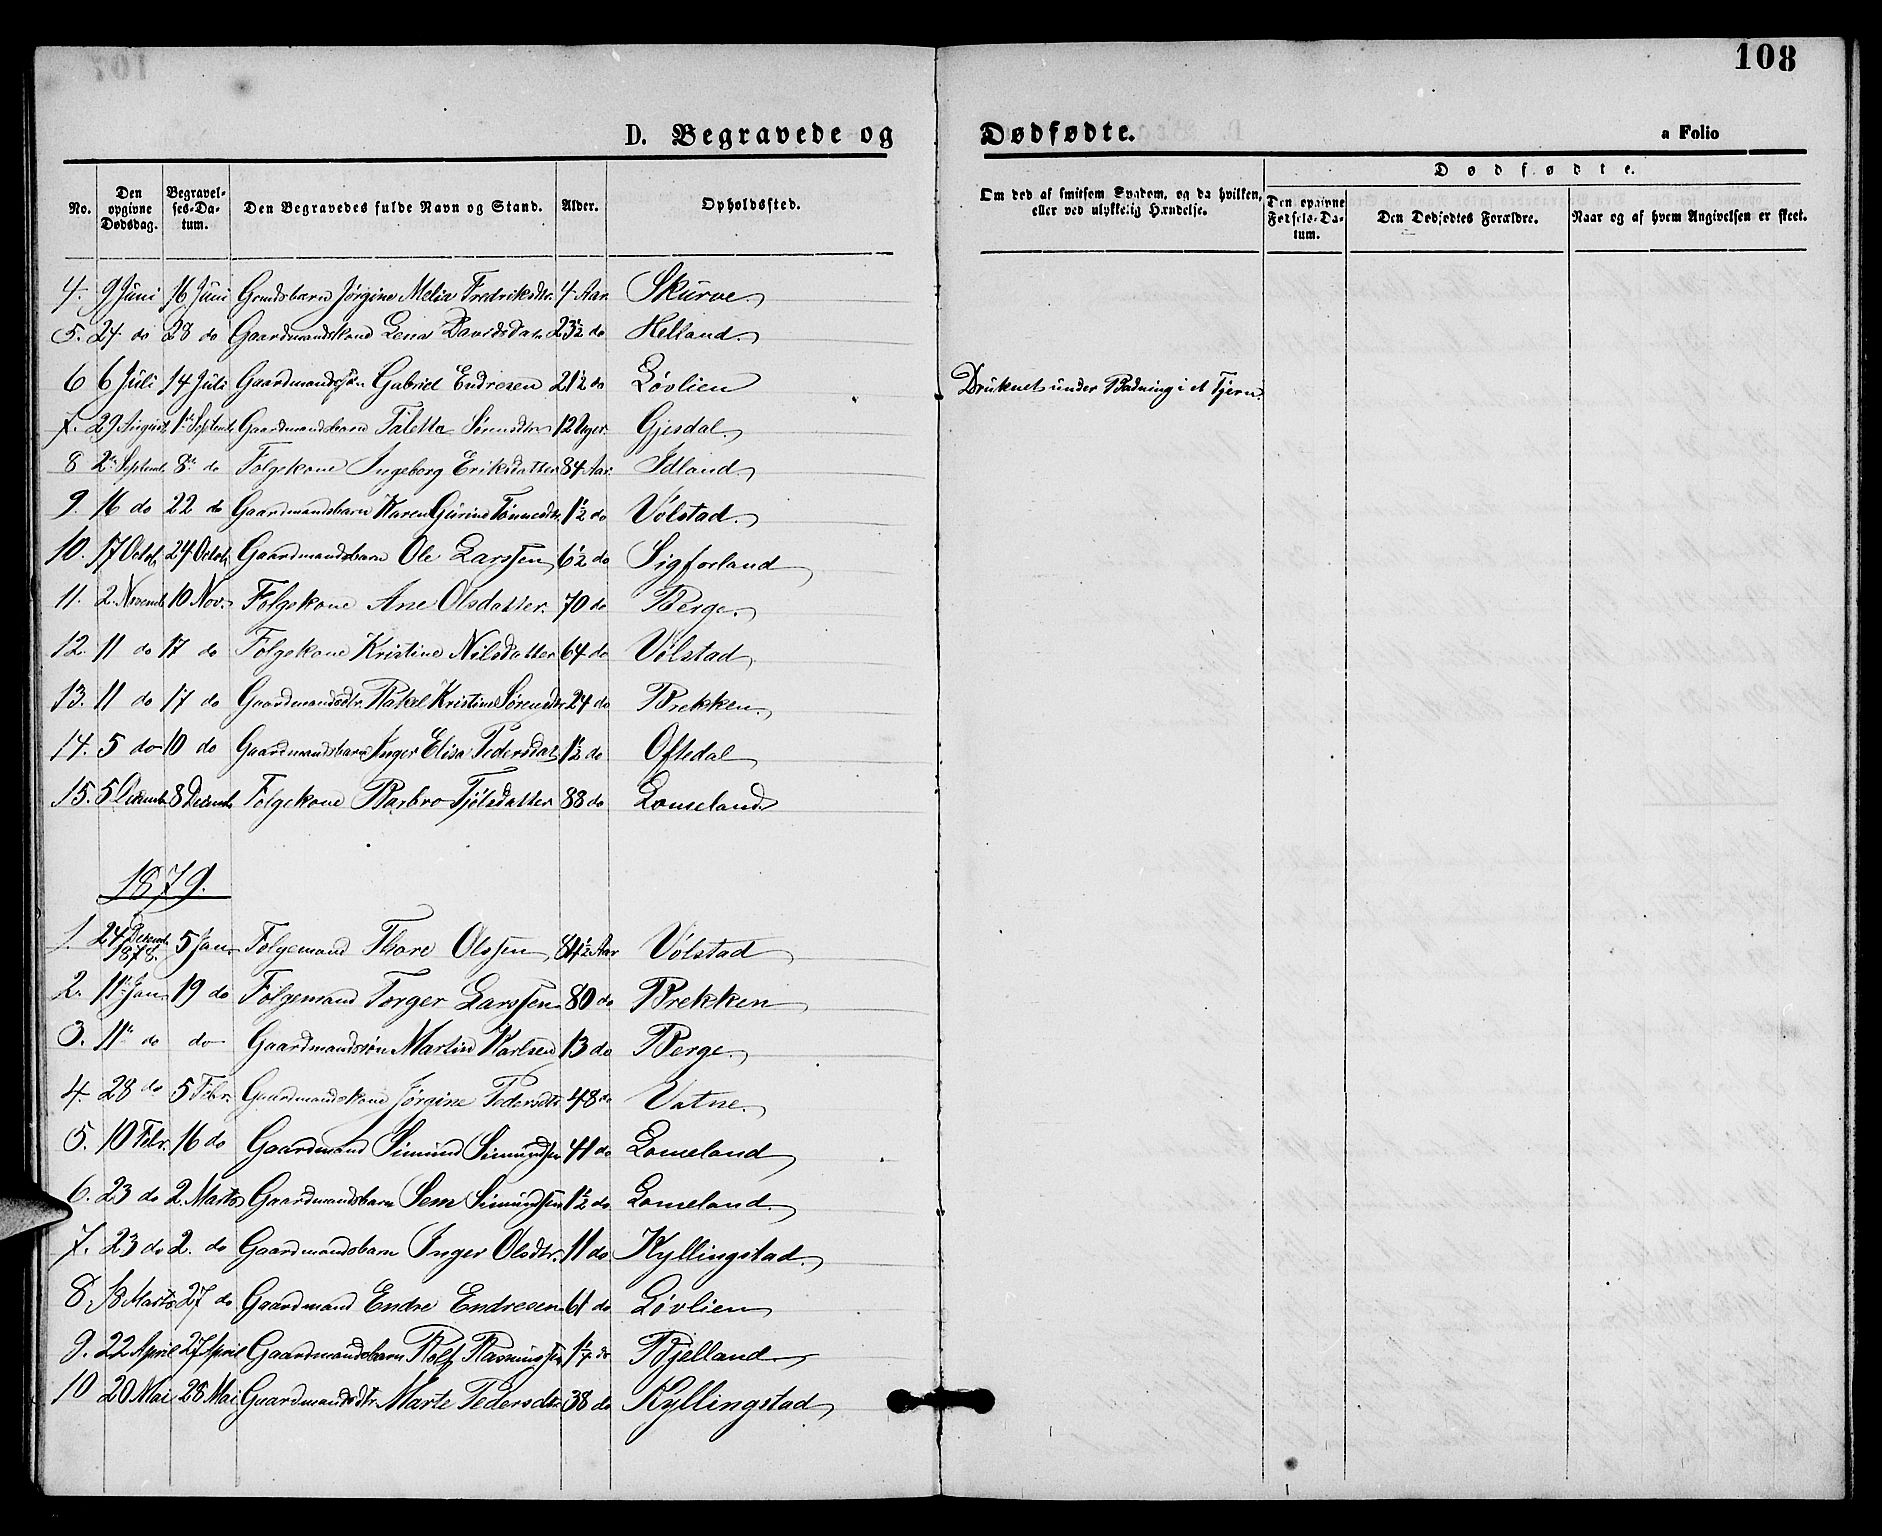 108
D. Begravede og Dødfødte. a Folio
No. Den opgivne Dødsdag. Begravelses-Datum. Den Begravedes fulde Navn og Stand. Alder. Opholdssted. Om død af smitsom Sygdom, og da hvilken, eller ved ulykkelig Hændelse. Dødfødte. Den opgivne Fødsels-Datum. Den Dødfødtes Forældre. Naar og af hvem Angivelsen er skeet.
4. 9 Juni 16 Juni Grmdsbarn Jørgine Melia Fredriksdtr. 4 Aar Skurve
5. 24 do 28 do Gaardmandskone Lena Davidsdatr 23½ do Helland
6 6 Juli 14 Juli Gaardmandssøn Gabriel Endresen 21½ do Løvlien Druknet under Badning i et Tjern.
7. 29 August 1ste Septemb. Gaardmandsbarn Taletta Sørensdtr 12 Uger Gjesdal
8 2den Septemb. 8de do Følgekone Ingeborg Eriksdatter 84 Aar Idland
9. 16 do 22 do Gaardmandsbarn Karen Gurine Tønnesdtr. 1½ do Vølstad
10. 17 Octob. 24 Octob. Gaardmandsbarn Ole Larssen 6½ do Sigforland
11. 2. Novemb. 10 Nov. Følgekone Ane Olsdatter 70 do Berge
12. 11 do 17 do Følgekone Kristine Nilsdatter 64 do Vølstad
13. 11 do 17 do Gaardmandsdtr. Rakel Kristine Sørensdtr 24 do Brekken
14. 5 do 10 do Gaardmandsbarn Inger Elisa Pedersdat. 1½ do Oftedal
15. 5 Decemb. 8 Decemb. Følgekone Barbro Tjølsdatter 88 do Lomeland
1879.
1. 24 Decemb. 1878. 5 Jan. Følgemand Thore Olssen 84½ Aar Vølstad
2. 11te Jan. 19 do Følgemand Torger Larssen 80 do Brekken
3. 11te do do Gaardmandssøn Martin Karlsen 13 do Berge
4. 28 do 5 Febr. Gaardmandskone Jørgine Pedersdtr 48 do Vatne
5. 10 Febr. 16 do Gaardmand Simund Simundsen 41 do Lomeland
6. 23 do 2. Marts Gaardmandsbarn Sem Simundsen 1½ do Lomeland
7. 23 do 2. do Gaardmandsbarn Inger Olsdtr. 11 do Kyllingstad
8 18 Marts 27 do Gaardmand Endre Endresen 61 do Løvlien
9. 22 April 27 April Gaardmandsbarn Rolf Rasmussen 1¼ do Bjelland
10 20 Mai 28 Mai Gaardmandsdtr Marte Pedersdtr 38 do Kyllingstad